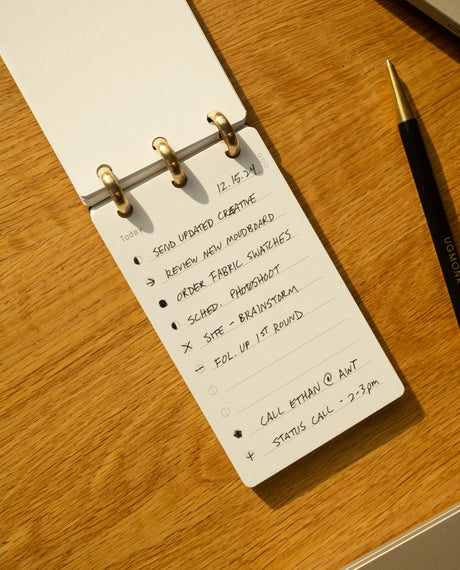 Today
12.15.24
SEND UPDATED CREATIVE
REVIEW NEW MOODBOARD
ORDER FABRIC SWATCHES
SCHED. PHOTOSHOOT
SITE - BRAINSTORM
FOL. UP 1ST ROUND
CALL ETHAN @ AWT
STATUS CALL - 2-3pm
UGMONK